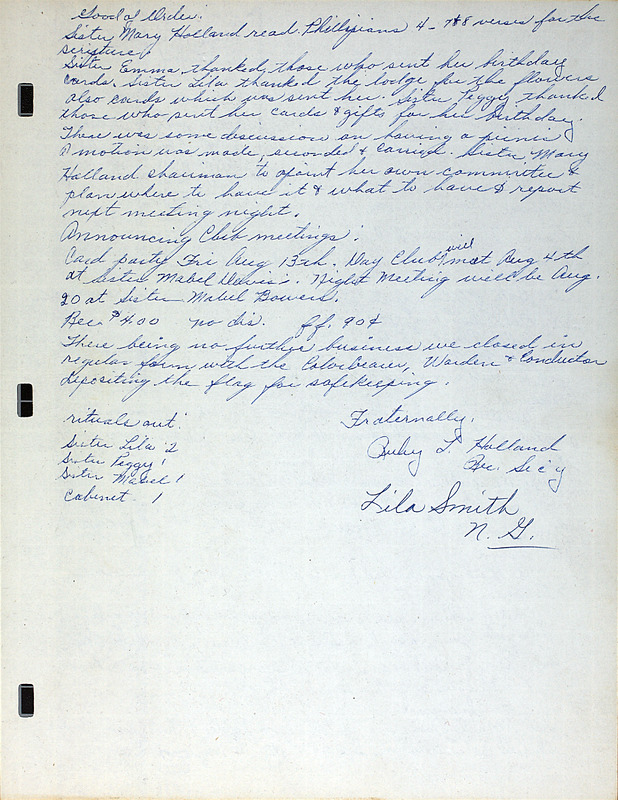 Good of Order.
Sister Mary Holland read Phillipians 4 - 7&8 verses for the
scripture.
Sister Emma thanked those who sent her birthday
cards. Sister Lila thanked the lodge for the flowers
also cards which was sent her. Sister Peggy thanked
those who sent her cards & gifts for her birthday.
There was some discussion on having a picnic
A motion was made, seconded & carried. Sister Mary
Holland chairman to apoint her own committee &
plan where to have it & what to have & report
next meeting night.
Announcing Club meetings.
Card party Fri Aug 13th. Day Club will meet Aug 4th
at Sister Mabel Davis's. Night Meeting will be Aug.
20 at Sister Mabel Bowers.
Rec. $4.00 no dis. ff. 90¢
There being no further business we closed in
regular form with the Colorbearer, Warden & Conductor
depositing the flag for safekeeping.
rituals out.
Sister Lila 2
Sister Peggy 1
Sister Mabel 1
Cabinet 1
Fraternally,
Ruby L. Holland
Rec. Sec'y
Lila Smith
N. G.